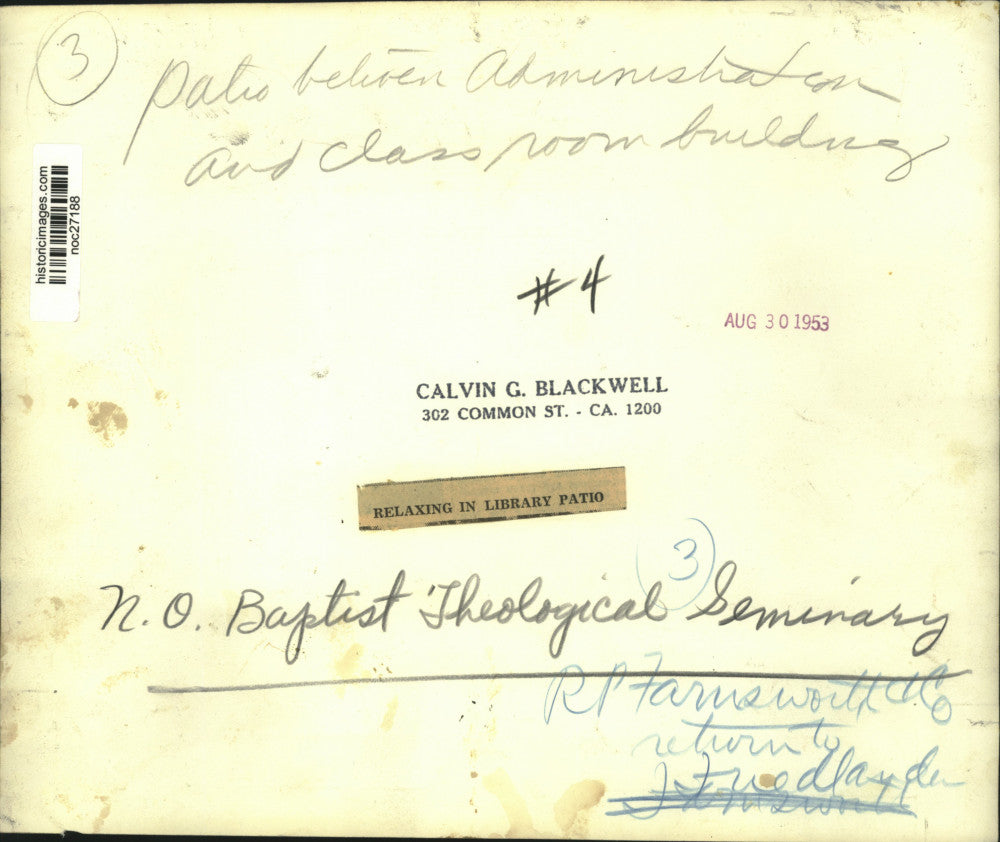 3
Patio between Administration
and class room building
historicimages.com
noc27188
#4
AUG 30 1953
CALVIN G. BLACKWELL
302 COMMON ST. - CA. 1200
RELAXING IN LIBRARY PATIO
3
N.O. Baptist Theological Seminary
R P Farnsworth & Co
return to
J Friedlander
Farnsworth